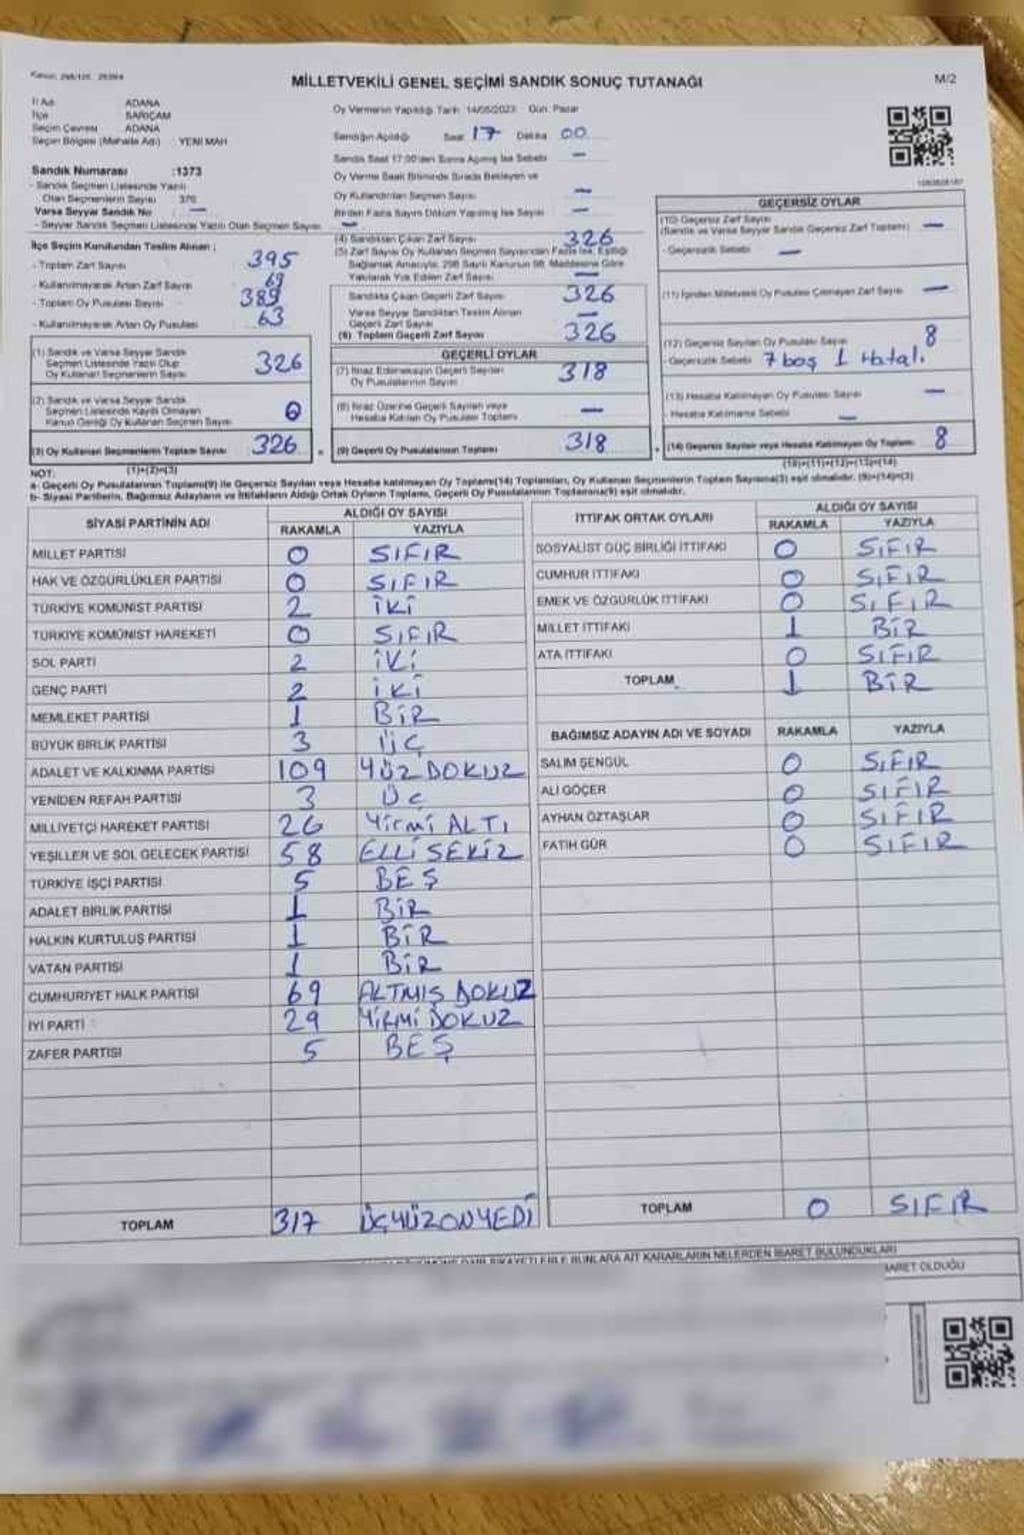 MİLLETVEKİLİ GENEL SEÇİMİ SANDIK SONUÇ TUTANAĞI
M/2
İl Adı ADANA
İlçe SARIÇAM
Seçim Çevresi ADANA
Seçim Bölgesi (Mahalle Adı) YENİ MAH
Sandık Numarası :1373
- Sandık Seçmen Listesinde Yazılı
Olan Seçmenlerin Sayısı : 370
Varsa Seyyar Sandık No : —
- Seyyar Sandık Seçmen Listesinde Yazılı Olan Seçmen Sayısı —
İlçe Seçim Kurulundan Teslim Alınan :
- Toplam Zarf Sayısı 395
- Kullanılmayarak Artan Zarf Sayısı 69
- Toplam Oy Pusulası Sayısı 389
- Kullanılmayarak Artan Oy Pusulası 63
(1) Sandık ve Varsa Seyyar Sandık
Seçmen Listesinde Yazılı Olup
Oy Kullanan Seçmenlerin Sayısı 326
(2) Sandık ve Varsa Seyyar Sandık
Seçmen Listesinde Kayıtlı Olmayan
Kanun Gereği Oy Kullanan Seçmen Sayısı 0
(3) Oy Kullanan Seçmenlerin Toplam Sayısı 326
(1)+(2)=(3)
Oy Vermenin Yapıldığı Tarih 14/05/2023 Gün: Pazar
Sandığın Açıldığı Saat 17 Dakika 00
Sandık Saat 17:00'den Sonra Açılmış İse Sebebi —
Oy Verme Saati Bitiminde Sırada Bekleyen ve
Oy Kullandırılan Seçmen Sayısı —
Birden Fazla Sayım Döküm Yapılmış İse Sayısı —
(4) Sandıktan Çıkan Zarf Sayısı 326
(5) Zarf Sayısı Oy Kullanan Seçmen Sayısından Fazla İse, Eşitliği
Sağlamak Amacıyla, 298 Sayılı Kanunun 98. Maddesine Göre
Yakılarak Yok Edilen Zarf Sayısı —
Sandıkta Çıkan Geçerli Zarf Sayısı 326
Varsa Seyyar Sandıktan Teslim Alınan
Geçerli Zarf Sayısı —
(6) Toplam Geçerli Zarf Sayısı 326
GEÇERLİ OYLAR
(7) İtiraz Edilmeksizin Geçerli Sayılan
Oy Pusulalarının Sayısı 318
(8) İtiraz Üzerine Geçerli Sayılan veya
Hesaba Katılan Oy Pusulası Toplamı —
(9) Geçerli Oy Pusulalarının Toplamı 318
GEÇERSİZ OYLAR
(10) Geçersiz Zarf Sayısı
(Sandık ve Varsa Seyyar Sandık Geçersiz Zarf Toplamı) —
- Geçersizlik Sebebi —
(11) İçinden Milletvekili Oy Pusulası Çıkmayan Zarf Sayısı —
(12) Geçersiz Sayılan Oy Pusulası Sayısı 8
- Geçersizlik Sebebi 7 boş 1 Hatalı
(13) Hesaba Katılmayan Oy Pusulası Sayısı —
- Hesaba Katılmama Sebebi —
(14) Geçersiz Sayılan veya Hesaba Katılmayan Oy Toplamı 8
(10)+(11)+(12)+(13)=(14)
NOT:
a- Geçerli Oy Pusulalarının Toplamı(9) ile Geçersiz Sayılan veya Hesaba Katılmayan Oy Toplamı(14) Toplamları, Oy Kullanan Seçmenlerin Toplam Sayısına(3) eşit olmalıdır. (9)+(14)=(3)
b- Siyasi Partilerin, Bağımsız Adayların ve İttifakların Aldığı Ortak Oyların Toplamı, Geçerli Oy Pusulalarının Toplamına(9) eşit olmalıdır.
SİYASİ PARTİNİN ADI ALDIĞI OY SAYISI
RAKAMLA YAZIYLA
MİLLET PARTİSİ 0 SIFIR
HAK VE ÖZGÜRLÜKLER PARTİSİ 0 SIFIR
TÜRKİYE KOMÜNİST PARTİSİ 2 İKİ
TÜRKİYE KOMÜNİST HAREKETİ 0 SIFIR
SOL PARTİ 2 İKİ
GENÇ PARTİ 2 İKİ
MEMLEKET PARTİSİ 1 BİR
BÜYÜK BİRLİK PARTİSİ 3 ÜÇ
ADALET VE KALKINMA PARTİSİ 109 YÜZ DOKUZ
YENİDEN REFAH PARTİSİ 3 ÜÇ
MİLLİYETÇİ HAREKET PARTİSİ 26 YİRMİ ALTI
YEŞİLLER VE SOL GELECEK PARTİSİ 58 ELLİ SEKİZ
TÜRKİYE İŞÇİ PARTİSİ 5 BEŞ
ADALET BİRLİK PARTİSİ 1 BİR
HALKIN KURTULUŞ PARTİSİ 1 BİR
VATAN PARTİSİ 1 BİR
CUMHURİYET HALK PARTİSİ 69 ALTMIŞ DOKUZ
İYİ PARTİ 29 YİRMİ DOKUZ
ZAFER PARTİSİ 5 BEŞ
TOPLAM 317 ÜÇYÜZONYEDİ
İTTİFAK ORTAK OYLARI ALDIĞI OY SAYISI
RAKAMLA YAZIYLA
SOSYALİST GÜÇ BİRLİĞİ İTTİFAKI 0 SIFIR
CUMHUR İTTİFAKI 0 SIFIR
EMEK VE ÖZGÜRLÜK İTTİFAKI 0 SIFIR
MİLLET İTTİFAKI 1 BİR
ATA İTTİFAKI 0 SIFIR
TOPLAM 1 BİR
BAĞIMSIZ ADAYIN ADI VE SOYADI RAKAMLA YAZIYLA
SALİM ŞENGÜL 0 SIFIR
ALİ GÖÇER 0 SIFIR
AYHAN ÖZTAŞLAR 0 SIFIR
FATİH GÜR 0 SIFIR
TOPLAM 0 SIFIR
ŞİKAYETLERLE BUNLARA AİT KARARLARIN NELERDEN İBARET BULUNDUKLARI
İBARET OLDUĞU